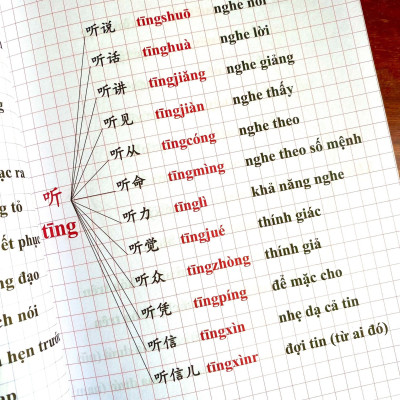 听说 tīngshuō nghe nói
听话 tīnghuà nghe lời
听讲 tīngjiǎng nghe giảng
听见 tīngjiàn nghe thấy
听从 tīngcóng nghe theo
听命 tīngmìng nghe theo số mệnh
听力 tīnglì khả năng nghe
听觉 tīngjué thính giác
听众 tīngzhòng thính giả
听凭 tīngpíng để mặc cho
听信 tīngxìn nhẹ dạ cả tin
听信儿 tīngxìnr đợi tin (từ ai đó)
听
tīng
ra
tỏ
phục
đạo
nói
hẹn trước